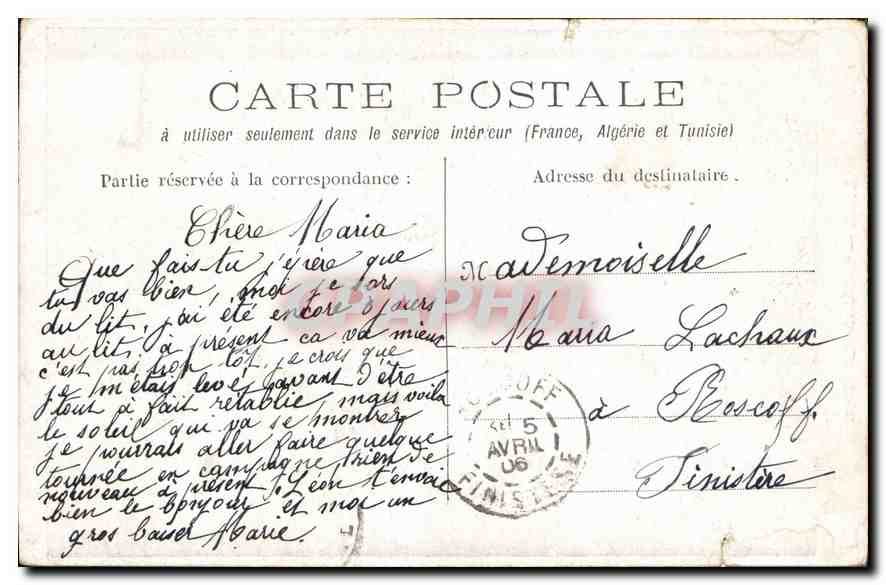 CARTE POSTALE
à utiliser seulement dans le service intérieur (France, Algérie et Tunisie)
Partie réservée à la correspondance :
Adresse du destinataire.
Chère Maria
Que fais-tu j'éspère que
tu vas bien, moi je sors
du lit, j'ai été encore 3 jours
au lit, à présent ca va mieux
c'est pas trop tôt, je crois que
je m'étais levée avant d'être
tout à fait rétablie, mais voila
le soleil qui va se montrer
je pourrais aller faire quelque
tournée en campagne, rien de
nouveau à présent. Léon t'envoie
bien le bonjour et moi un
gros baiser Marie.
Mademoiselle
Maria Lachaux
à Roscoff.
Finistère
ROSCOFF
5
AVRIL
06
FINISTERE
CPAPHIL